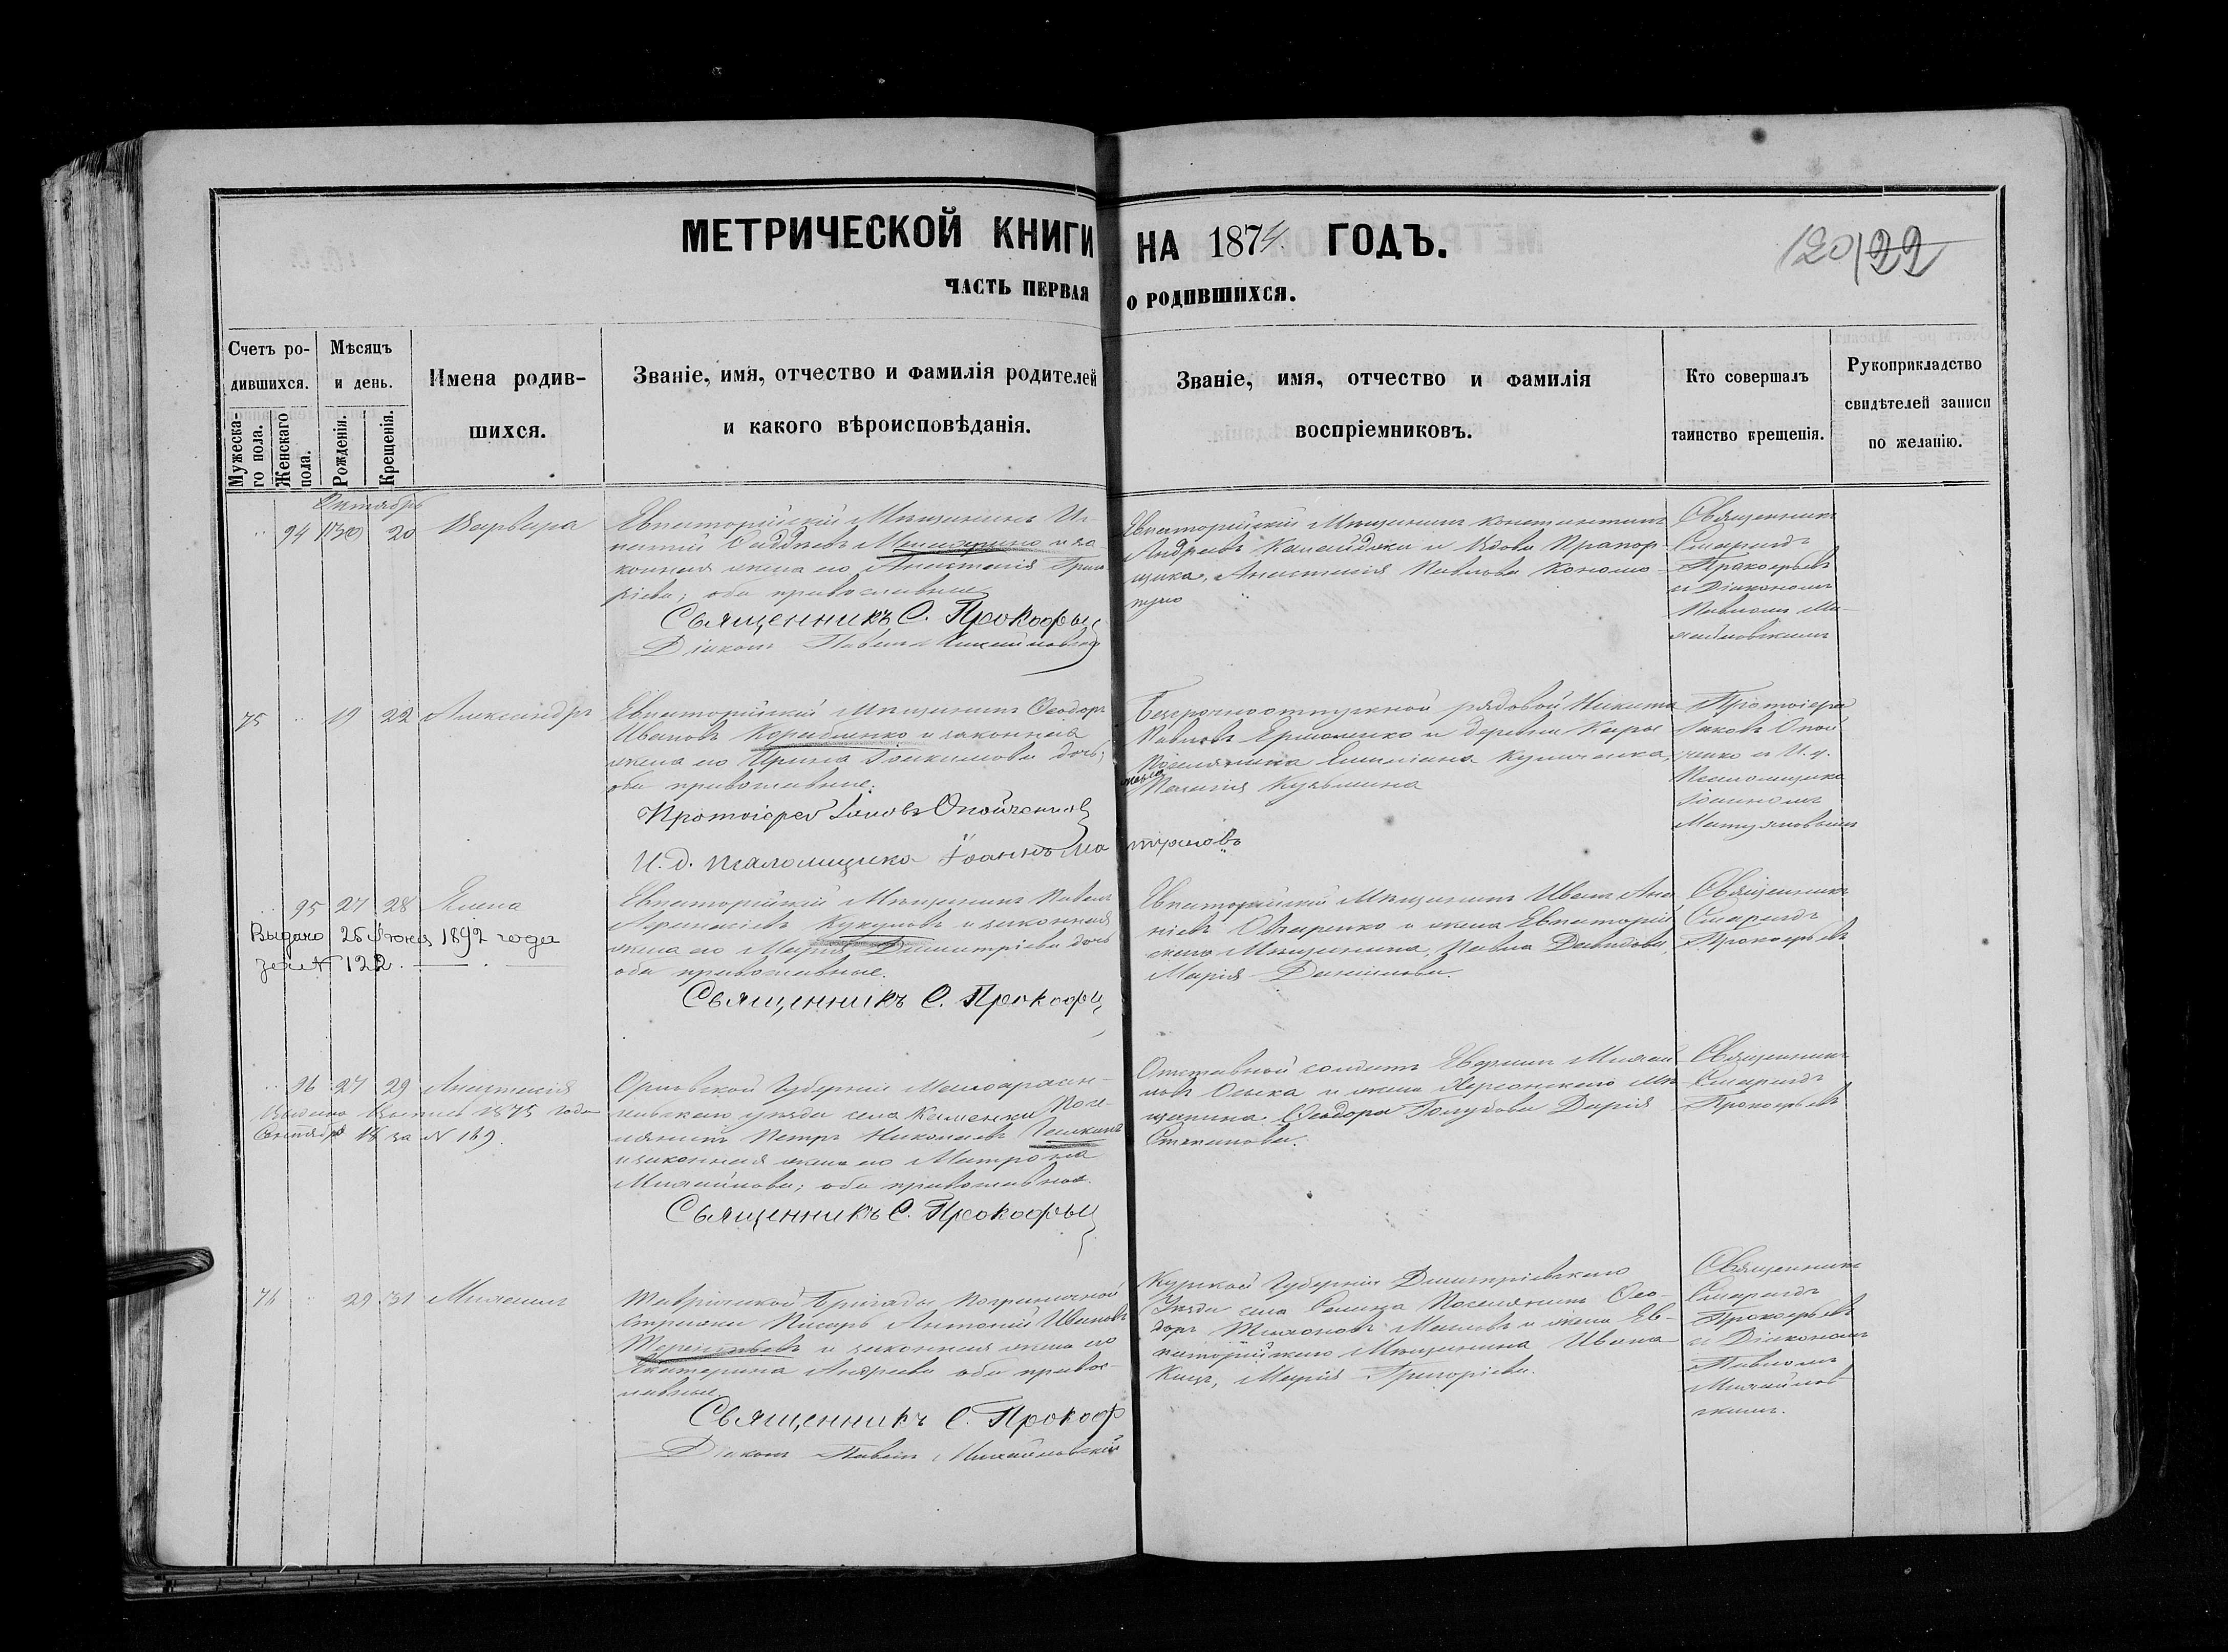 МЕТРИЧЕСКОЙ КНИГИ НА 1874 ГОДЪ.
120/22
ЧАСТЬ ПЕРВАЯ О РОДИВШИХСЯ.
Счетъ родившихся.
Мужескаго пола.
Женскаго пола.
Мѣсяцъ и день.
Рожденія.
Крещенія.
Имена родив-
шихся.
Званіе, имя, отчество и фамилія родителей
и какого вѣроисповѣданія.
Званіе, имя, отчество и фамилія
воспріемниковъ.
Кто совершалъ
таинство крещенія.
Рукоприкладство
свидѣтелей записи
по желанію.
Октябрь
94 20 Варвара
Евпаторійскій Мѣщанинъ
конная жена его Анастасія Григо
ріева; оба православные
Священникъ С. Прокофьев
Діаконъ Павелъ Михайловскій
Евпаторійскій Мѣщанинъ Константинъ
Андреевъ и вдова Прапор-
щика, Анастасія Павлова
Священникъ
Смарагдъ
Прокофьевъ
и Діакономъ
Павломъ Ми-
хайловскимъ
75 19 22 Александръ
Евпаторійскій Мѣщанинъ Ѳеодоръ
Ивановъ Корабленко и законная
жена его Ирина Іоакимова дочь;
оба православные.
Протоіерей Іаковъ Опойченко
И. д. псаломщика Іоаннъ Матусновъ
Безсрочноотпускной рядовой Никита
Павловъ Ермоленко и деревни
Поселянина Емиліана
жена Пелагія Кузьмина
Протоіерей
Іаковъ Опой
ченко и И. д.
Псаломщика
Іоанномъ
95 27 28 Елена
Выдано 25 Июня 1892 года
за № 122.
Евпаторійскій Мѣщанинъ Павелъ
Кукуловъ и законная
жена его Марія Димитріева дочь
оба православные.
Священникъ С. Прокофьев
Евпаторійскій Мѣщанинъ Иванъ Ана
ніевъ Овчаренко и жена Евпаторій
скаго Мѣщанина, Павла Давидова,
Марія Данилова.
Священникъ
Смарагдъ
Прокофьевъ
96 27 29 Анастасія
Выдана Выпись 1875 года
Сентября 18 за № 169.
Орловской Губерніи Малоархан-
гельскаго уѣзда села Каменки Посе-
лянинъ Петръ Николаевъ
и законная жена его Матрона
Михайлова; оба православные.
Священникъ С. Прокофьев
Отставной солдатъ Михай
ловъ и жена Херсонскаго Мѣ
щанина Ѳеодора Голубова Дарія
Степанова.
Священникъ
Смарагдъ
Прокофьевъ
76 29 31 Михаилъ
Таврической Бригады Пограничной
Стражи Писарь Антоній Ивановъ
Терентьевъ и законная жена его
Екатерина Андреева оба правос-
лавные.
Священникъ С. Прокоф
Діаконъ Павелъ Михайловскій
Курской Губерніи Дмитріевскаго
Уѣзда села Поселянинъ Ѳео-
доръ Тихоновъ и жена Ев-
паторійскаго Мѣщанина Ивана
Кица, Марія Григоріева.
Священникъ
Смарагдъ
Прокофьевъ
и Діакономъ
Павломъ
Михайлов
скимъ.